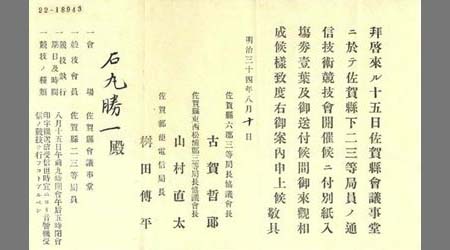 22-18943
拜啓來ル十五日佐賀縣會議事堂
ニ於テ佐賀縣下二三等局員ノ通
信技術競技會開催候ニ付別紙入
塲劵壹葉及御送付候間御來觀相
成候樣致度右御案内申上候敬具
明治三十四年八月十日
佐賀縣六郡三等局長協議會長
古賀哲郎
佐賀縣東西松浦郡三等局長協議會長
山村直太
佐賀郵便電信局長
樹田傳平
石丸勝一殿
一會塲 佐賀縣會議事堂
一競技會員 佐賀縣二三等局員
一競技執行期日及時間 八月十五日午前九時開會午后五時閉會
一競技ノ種類 印字機送信受信